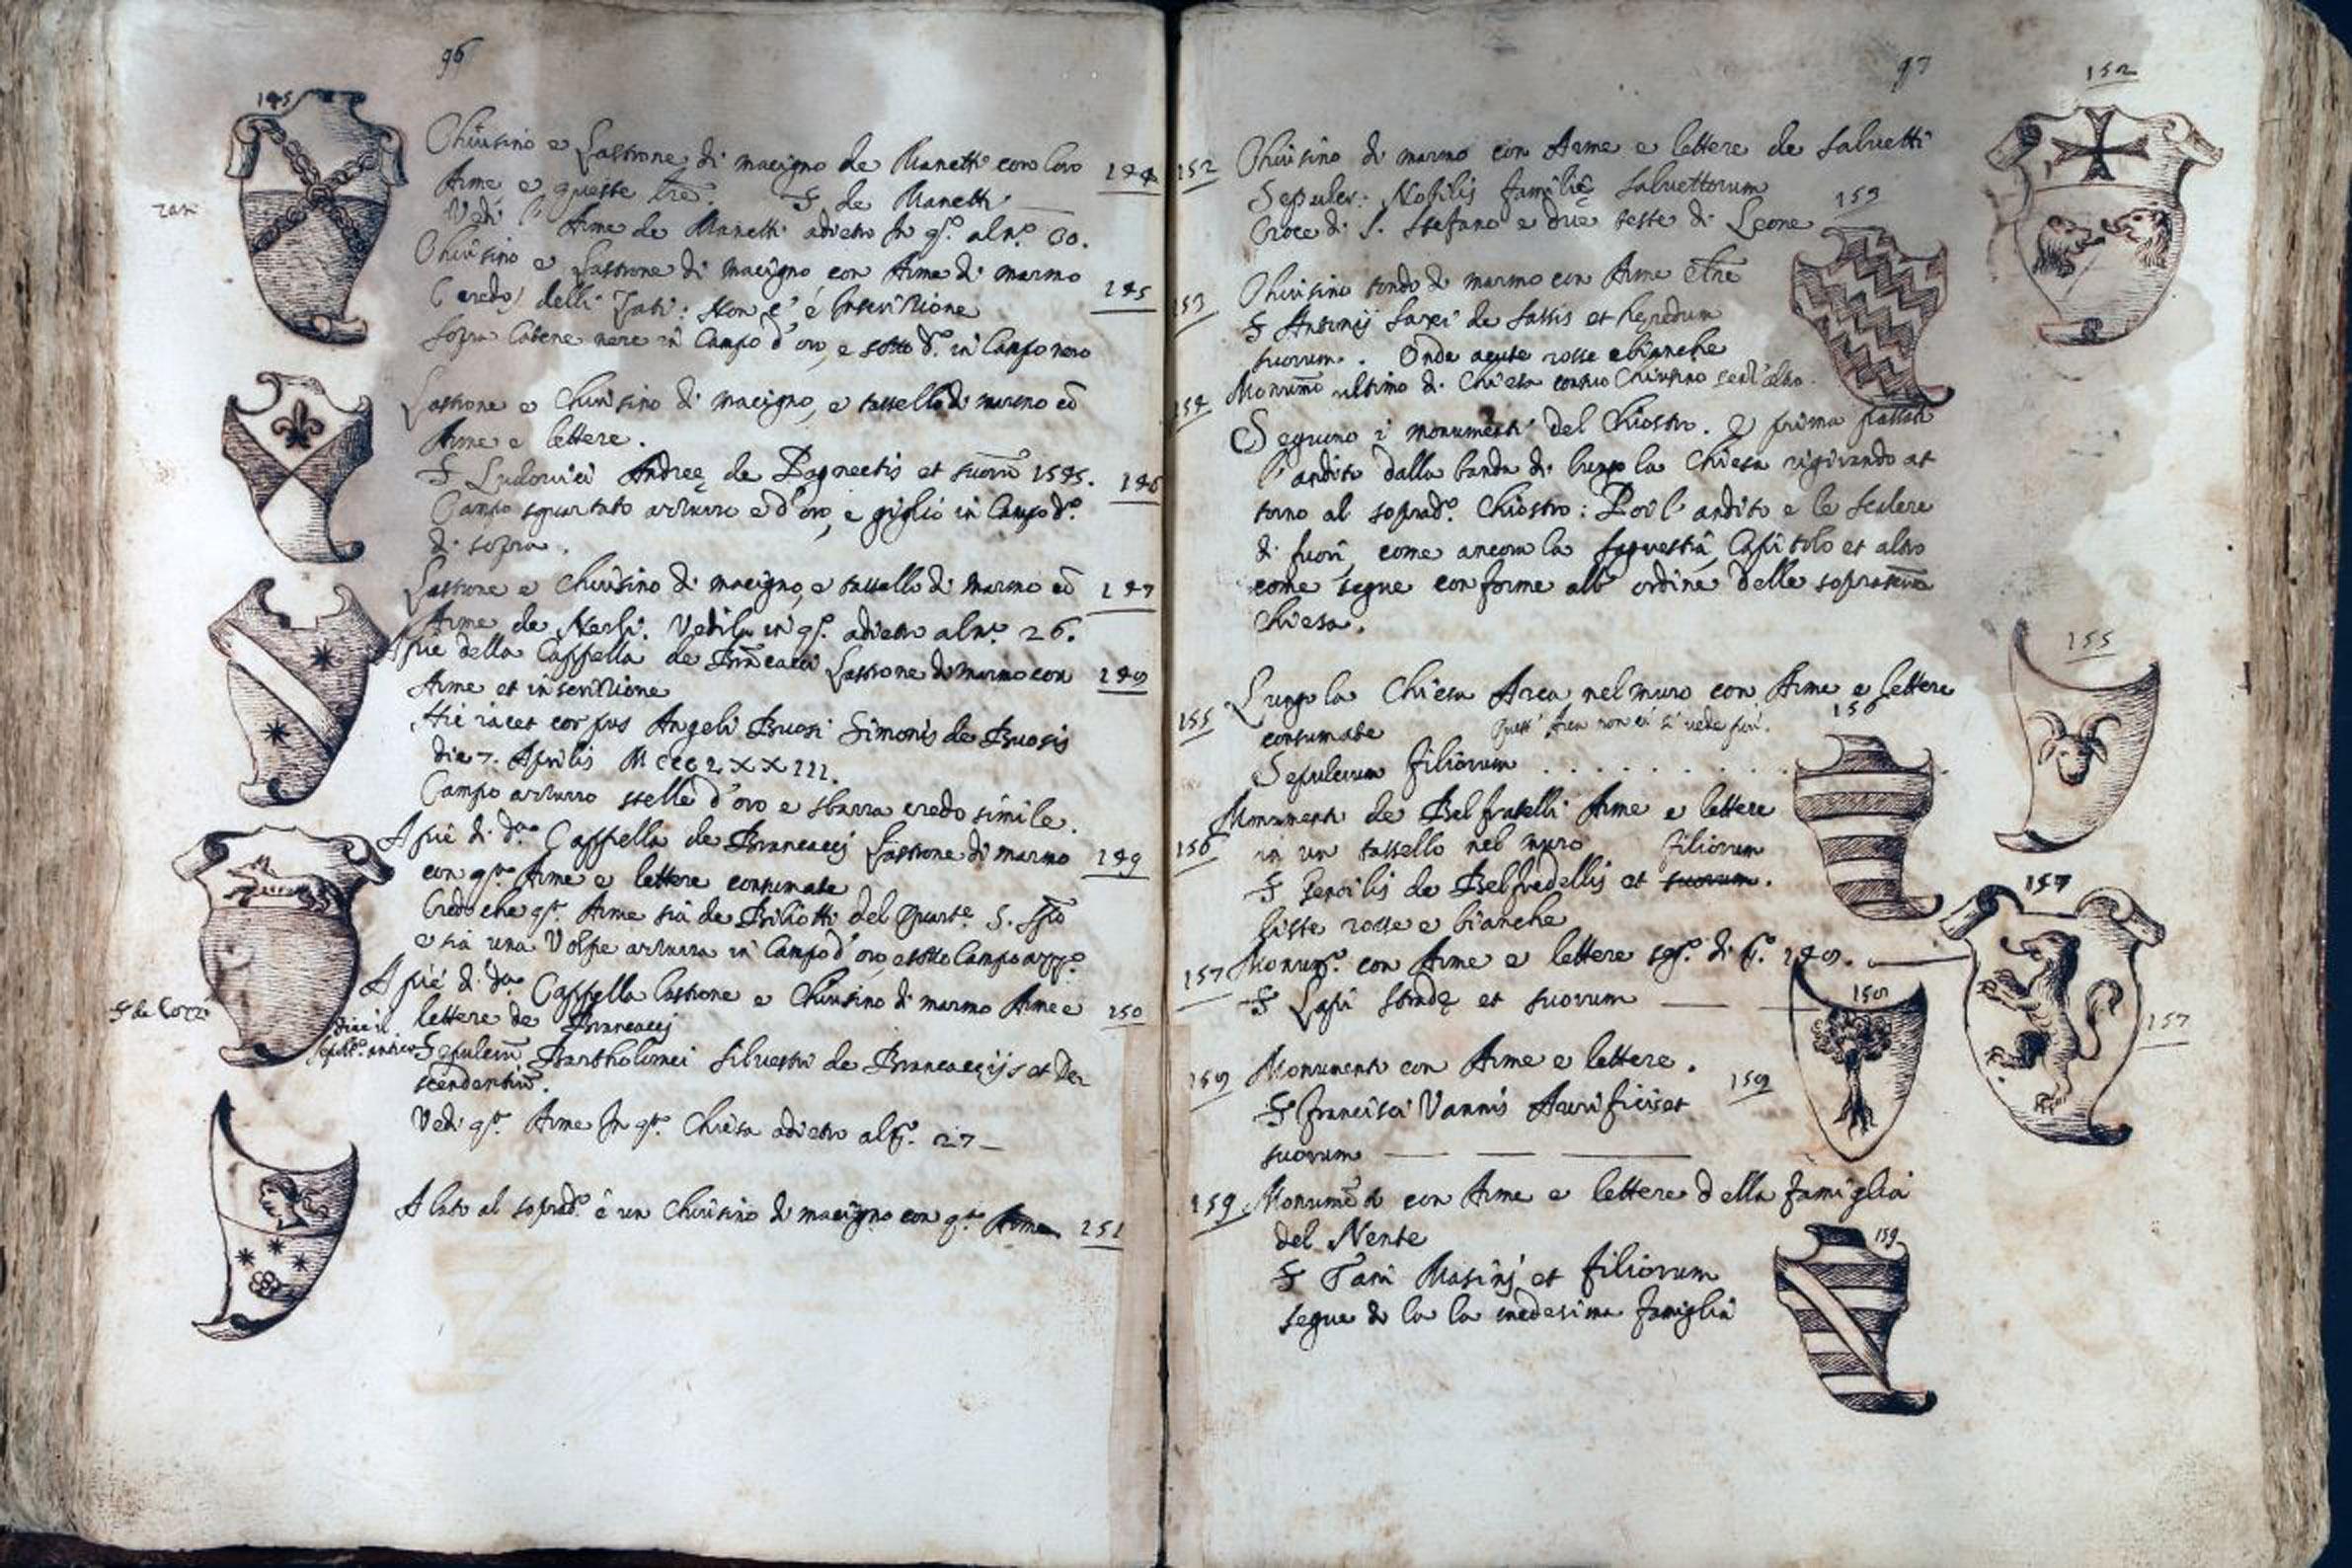 96
145
Chiusino e Lastrone di macigno de Manetti con loro 144
Arme e queste lrē. S de Manetti
Vedi l'Arme de Manetti adietro In q.ª al n.º 30.
Chiusino e Lastrone di macigno con Arme di marmo
Credo delli Zati: Non v'è Inscrizione 145
zati
sopra Catene nere in Campo d'oro, e sotto d.º in Campo nero
Lastrone e Chiusino di macigno, e tassello di marmo cō
Arme e lettere.
S Ludovici Andreę de Pagnectis et suorū 1545. 146
Campo squartato azzurro e d'oro, e giglio in Campo d.º
di sopra.
Lastrone e Chiusino di macigno, e tassello di marmo cō 147
Arme de Nerli. Vedila in q.ª adietro al n.º 26.
A piè della Cappella de Brācacci Lastrone di marmo con 148
Arme et inscrizione
Hic iacet corpus Angeli Buosi Simonis de Buosis
die 7. Aprilis MCCCLXXIII.
Campo azzurro stelle d'oro e sbarra credo simile.
A piè di d.ª Cappella de Brancacci Lastrone di marmo 149
con q.ª Arme e lettere consumate
Credo che q.ª Arme sia de Biliotti del Quart.e S. Spō
e sia una Volpe azzurra in Campo d'oro, e sotto Campo azz.º
A piè di d.ª Cappella lastrone e Chiusino di marmo Arme e 150
lettere de Brancacci
Sepulcrū Bartholomei Silvestri de Brancaccijs et De
scendentiū.
Vedi q.ª Arme In q.ª Chiesa adietro al f.º 27
A lato al soprad.º è un Chiusino di macigno con q.ª Arme 151
97
152
152 Chiusino di marmo con Arme e lettere de Salvetti
Sepulcr: Nobilis familię Salvettorum
Croce di S. Stefano e due teste di Leone
153
153 Chiusino tondo di marmo con Arme e lrē
S Antonij Saxi de Sassis et heredum
suorum. Onde acute rosse e bianche
154 Monumō ultimo di Chiesa con suo Chiusino senz'altro.
Seguono i monumenti del Chiostro. E prima passato
l'andito dalla banda di lungo la Chiesa rigirando at
torno al soprad.º Chiostro: Poi l'andito e le scalere
di fuori, come ancora la sagrestia, Capitolo et altro
come segue conforme all'ordine della soprascrā
Chiesa.
155
155 Lungo la Chiesa Arca nel muro con Arme e lettere
consumate Quest'Arca non vi si vede più.
Sepulcrum filiorum . . . . . . . .
156
156 Monumenti de Belfratelli Arme e lettere
in un tassello nel muro filiorum
S Pencilis de Belfredellis et suorum.
liste rosse e bianche
157
157 Monum.º con Arme e lettere
S Lapi et suorum
157
158
158 Monumento con Arme e lettere. 158
S Francisci Vannis Aurificis et
suorum
159. Monumēto con Arme e lettere della famiglia
del Nente
159
S Tani Masini et filiorum
segue di la la medesima famiglia